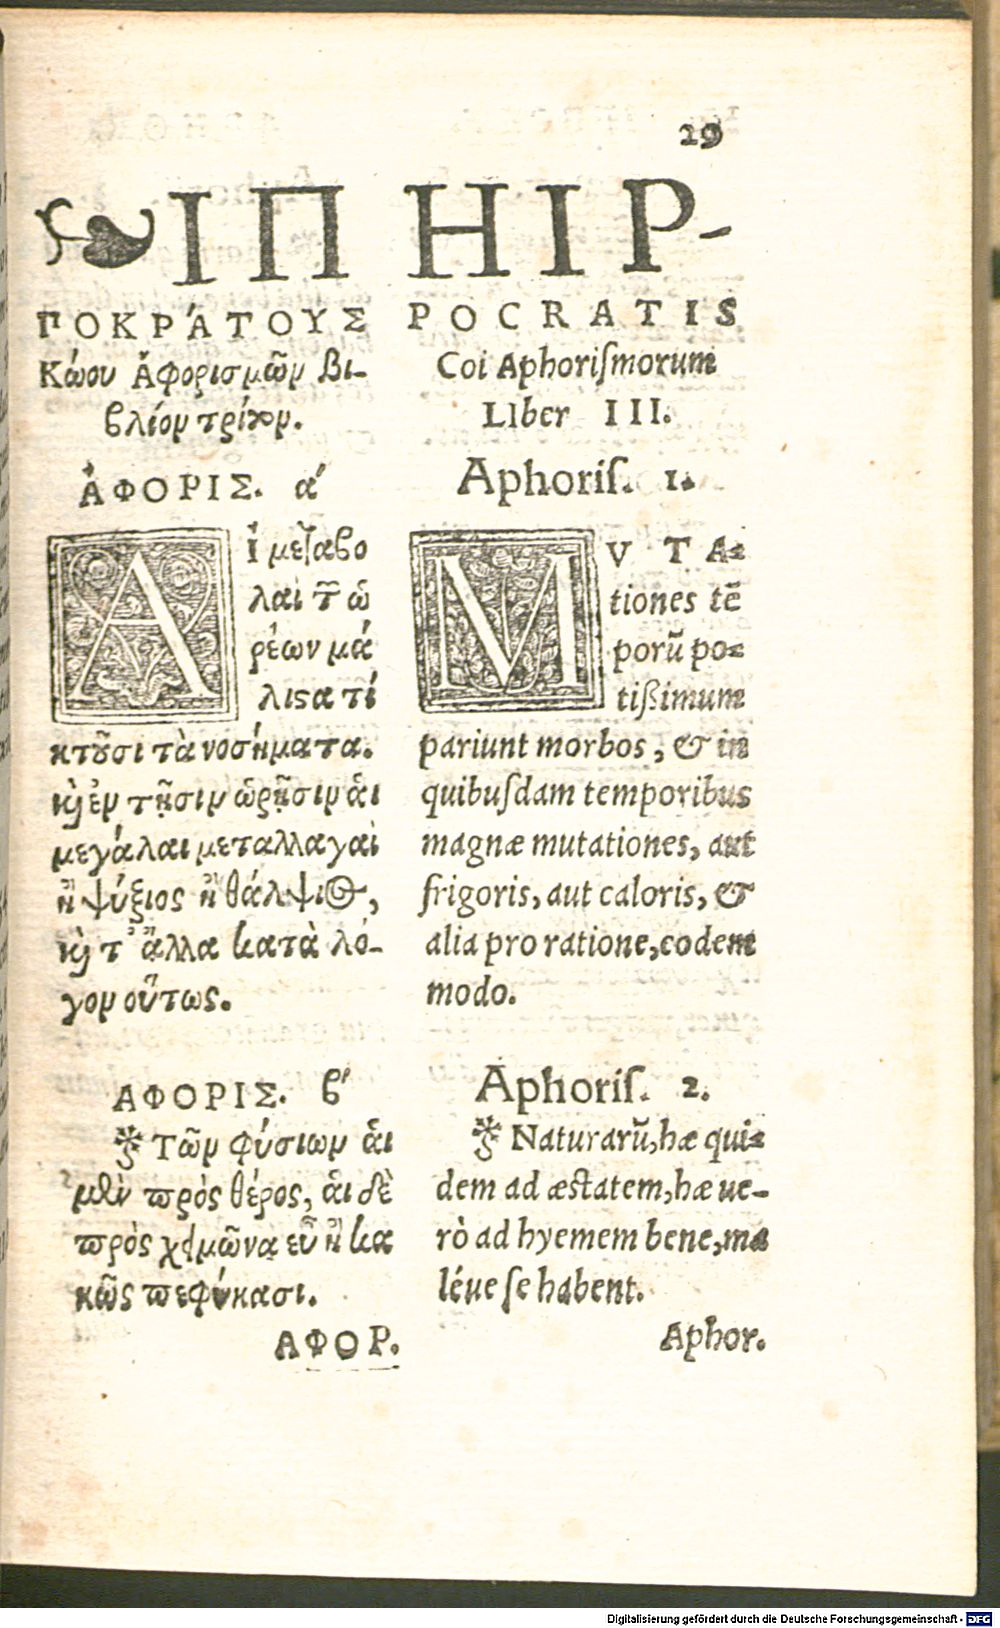 29
❧ ΙΠ
ΠΟΚΡΆΤΟΥΣ
Κώου Ἀφορισμῶν Βι-
βλίον τρίτον.
ἈΦΟΡΙΣ. ά
Αἱ μεταβο
λαὶ τ͂ ὡ
ρέων μά
λιϛα τί
κτουσι τὰ νοσήματα.
καὶ ἐν τῇσιν ὡρῇσιν ἁι
μεγάλαι μεταλλαγαὶ
ἢ ψύξιος ἢ θάλψιος,
καὶ τ' ἄλλα κατὰ λό-
γον οὕτως.
ΑΦΟΡΙΣ. β'
Τῶν φύσιων ἁι
μὲν πρὸς θέρος, ἁι δὲ
πρὸς χειμῶνα εὖ ἢ κα
κῶς πεφύκασι.
ΑΦΟΡ.
HIP-
POCRATIS
Coi Aphoriſmorum
LIber III.
Aphoriſ. 1.
MVTA-
tiones tē
porū po-
tißimum
pariunt morbos, & in
quibuſdam temporibus
magnæ mutationes, aut
frigoris, aut caloris, &
alia pro ratione, eodem
modo.
Aphoriſ. 2.
Naturarū, hæ qui-
dem ad æstatem, hæ ue-
rò ad hyemem bene, ma
léue ſe habent.
Aphor.
Digitalisierung gefördert durch die Deutsche Forschungsgemeinschaft - DFG